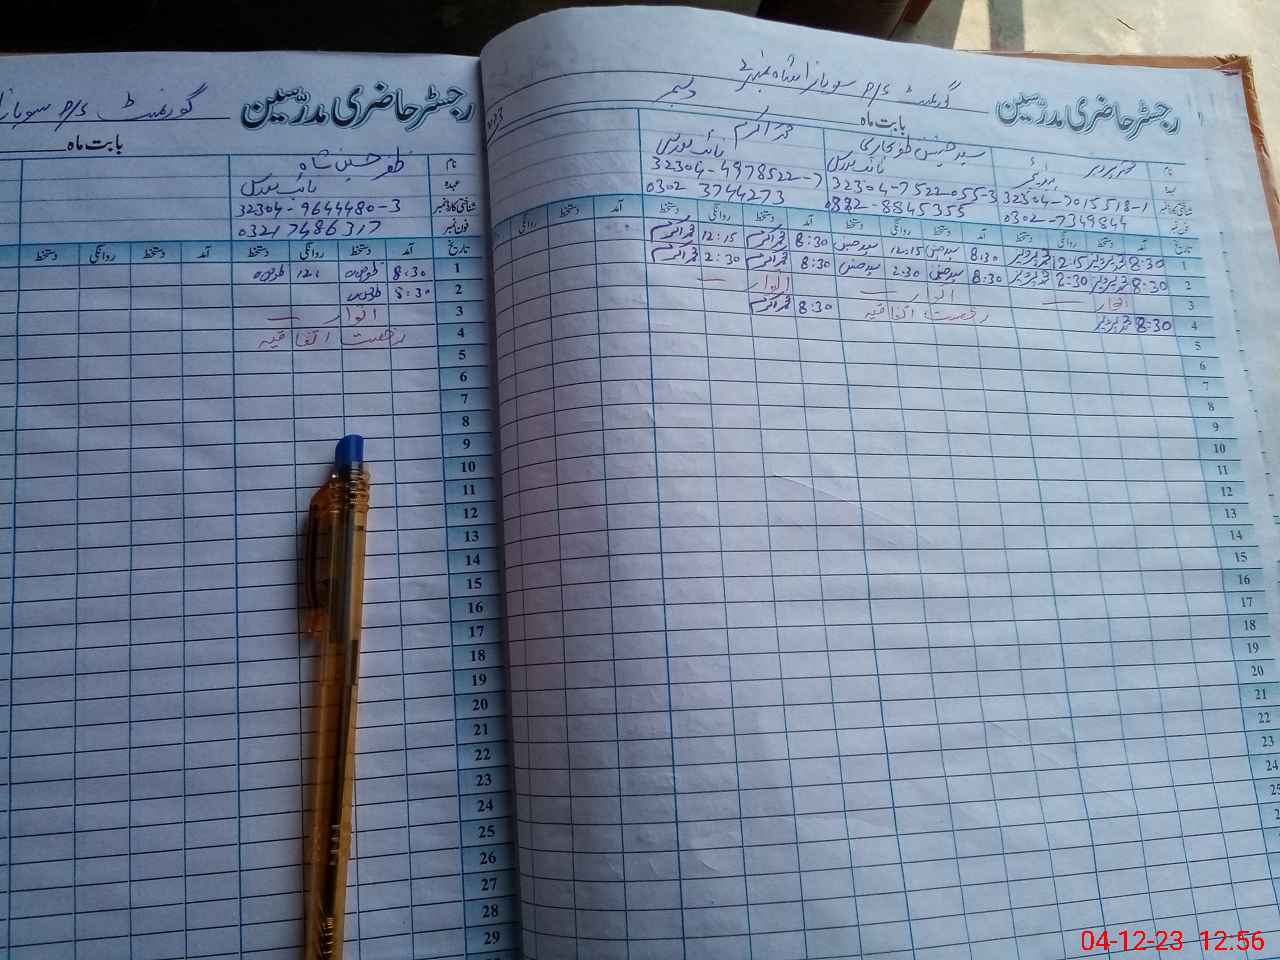 رجسٹر حاضری مدرسین
گورنمنٹ P/S
بابت ماہ دسمبر
نام محمد پرویز
سید حسنین
محمد اکرم
عہدہ
نائب مدرس
شناختی کارڈ نمبر 32304-7015518-1
32304-7522055-3
32304-4978522-7
فون نمبر 0302-7349844
8845355
0302 3744273
تاریخ آمد دستخط روانگی دستخط آمد دستخط روانگی دستخط آمد دستخط روانگی دستخط آمد دستخط روانگی
1 8:30 محمد پرویز 12:15 محمد پرویز 8:30 سید حسنین 12:15 سید حسنین 8:30 محمد اکرم 12:15 محمد اکرم
2 8:30 محمد پرویز 2:30 محمد پرویز 8:30 سید حسنین 2:30 سید حسنین 8:30 محمد اکرم 2:30 محمد اکرم
3 اتوار اتوار اتوار
4 8:30 محمد پرویز رخصت اتفاقیہ 8:30 محمد اکرم
5
6
7
8
9
10
11
12
13
14
15
16
17
18
19
20
21
22
23
24
رجسٹر حاضری مدرسین
گورنمنٹ P/S
بابت ماہ
نام ظفر حسین شاہ
عہدہ نائب مدرس
شناختی کارڈ نمبر 32304-9644480-3
فون نمبر 0321 7486317
تاریخ آمد دستخط روانگی دستخط آمد دستخط روانگی دستخط
1 8:30
2 8:30
3 اتوار
4 رخصت اتفاقیہ
5
6
7
8
9
10
11
12
13
14
15
16
17
18
19
20
21
22
23
24
25
26
27
28
29
04-12-23 12:56